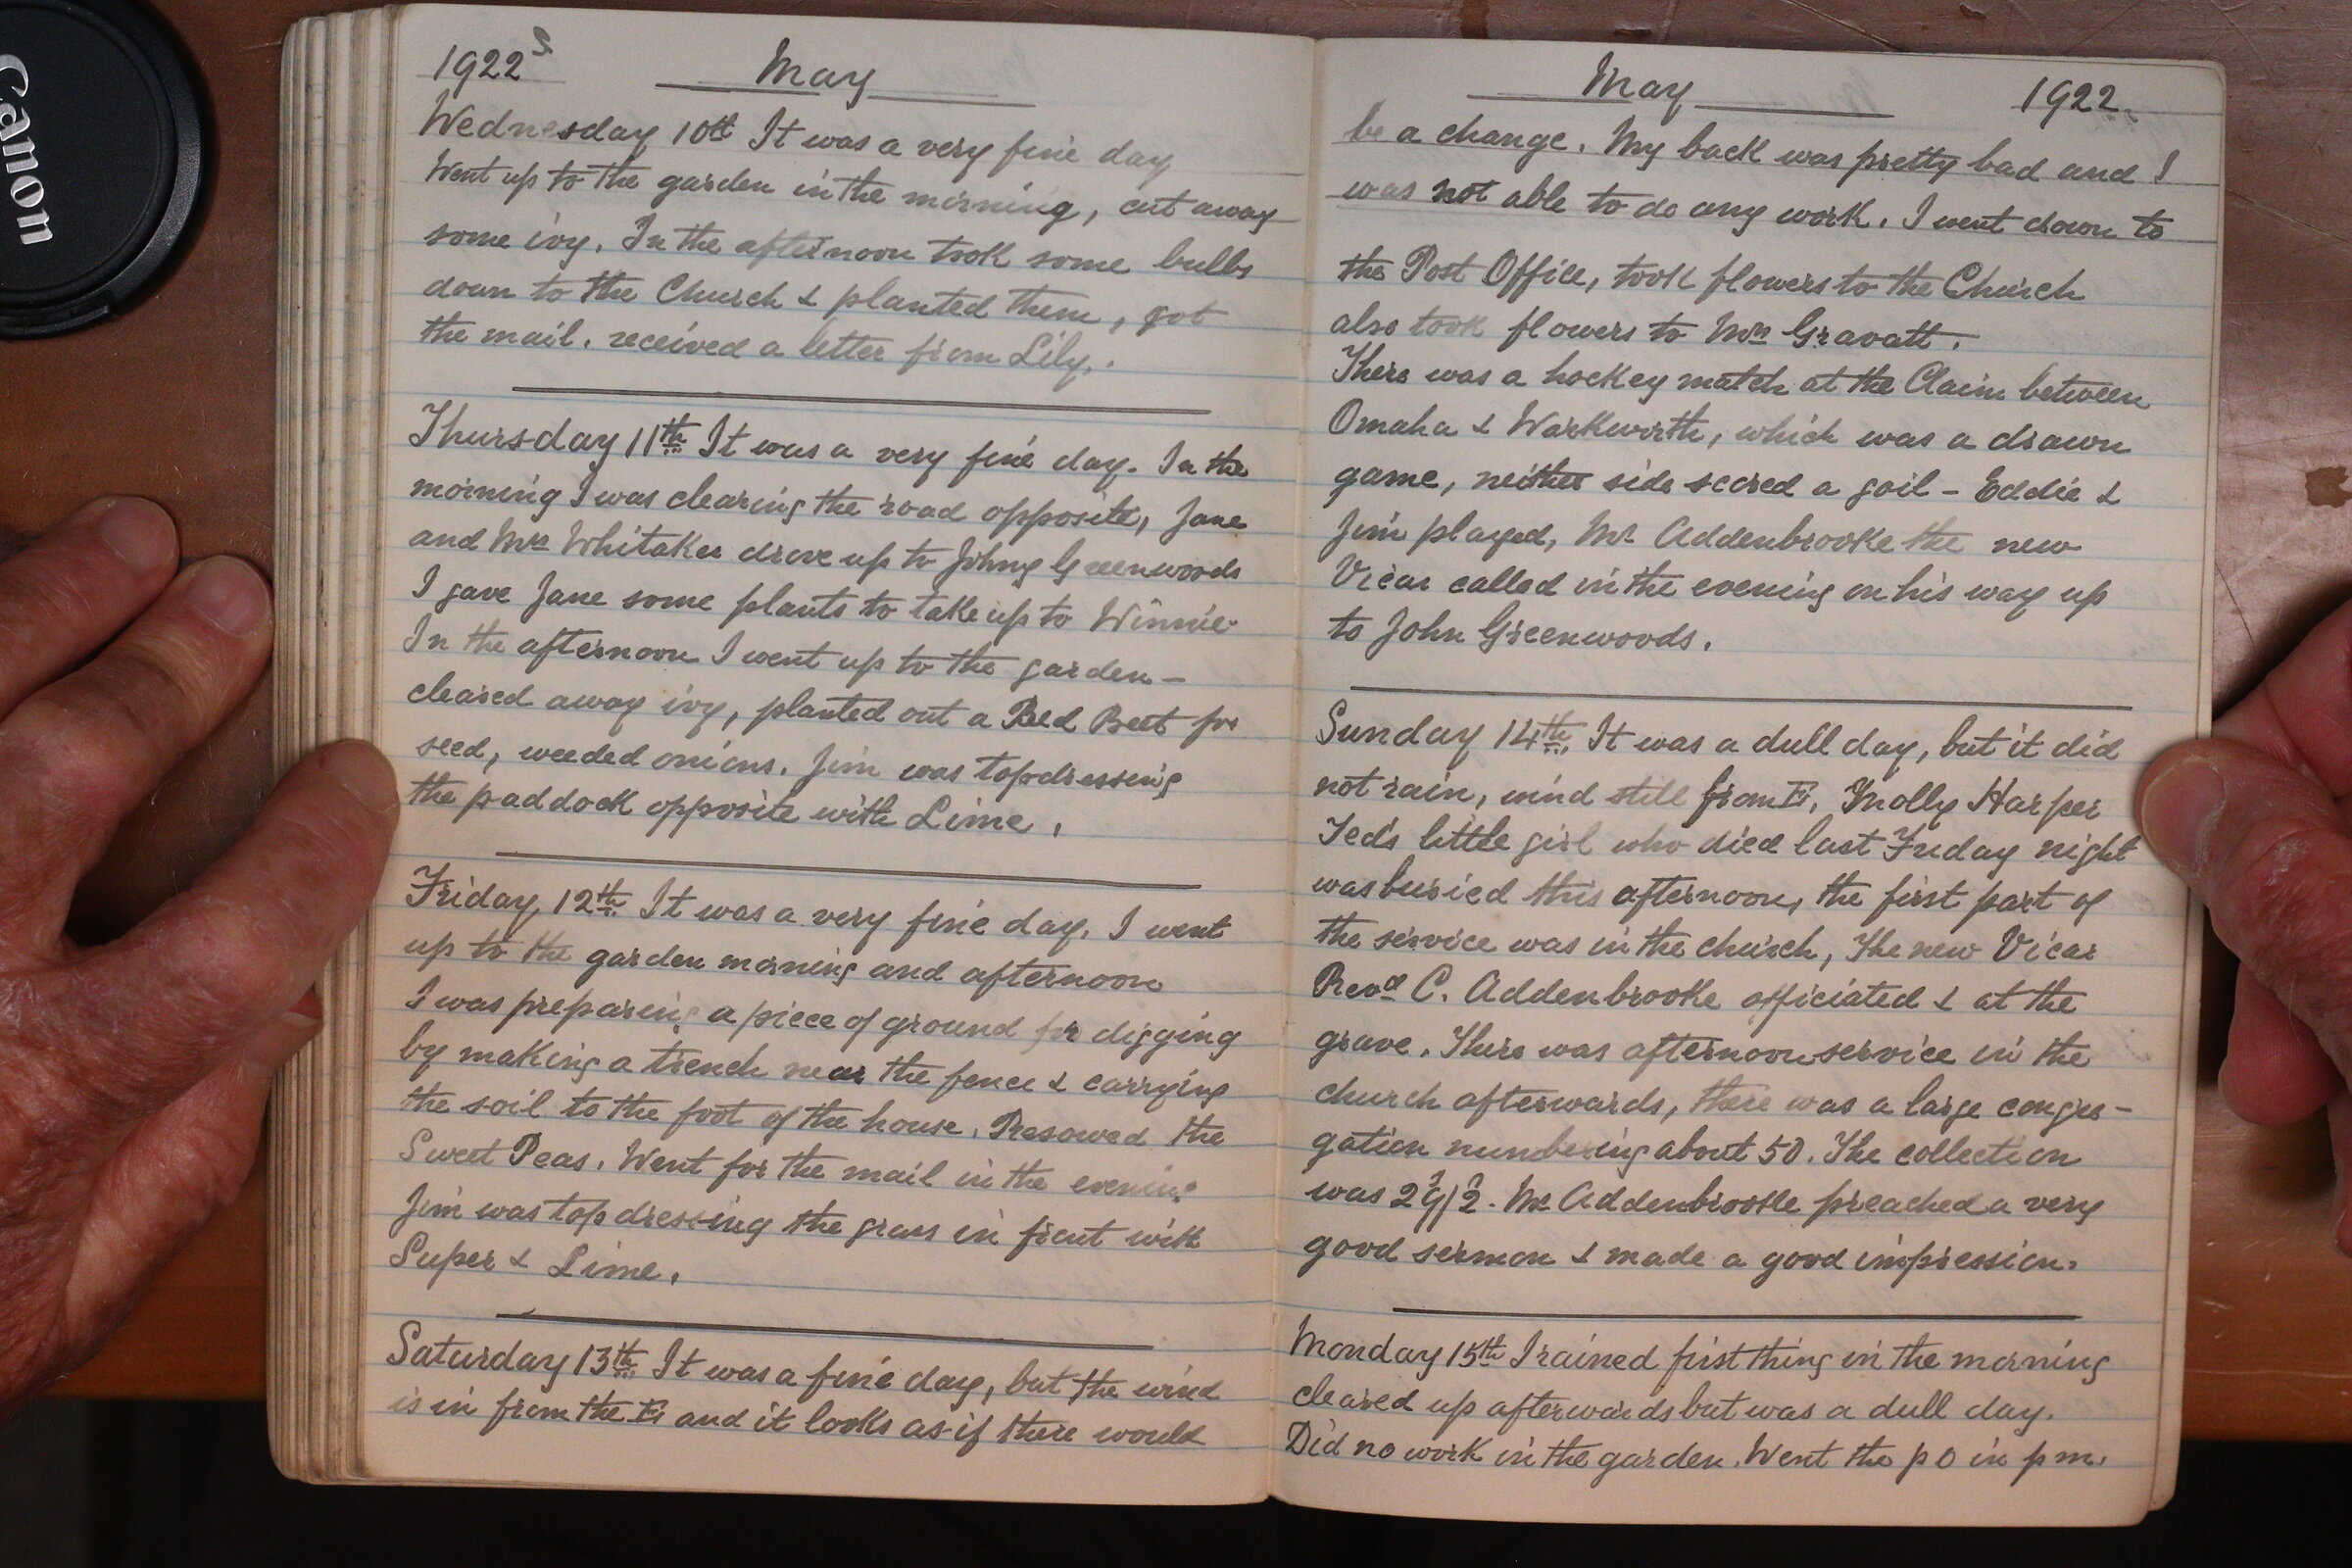 Canon
1922
May
Wednesday 10th It was a very fine day
Went up to the garden in the morning, cut away
some ivy. In the afternoon took some bulbs
down to the Church & planted them, got
the mail. received a letter from Lily.
Thursday 11th It was a very fine day. In the
morning I was clearing the road opposite, Jane
and Mrs Whitaker drove up to Johny Greenwoods
I gave Jane some plants to take up to Winnie.
In the afternoon I went up to the garden -
cleared away ivy, planted out a Red Beet for
seed, weeded onions. Jim was topdressing
the paddock opposite with Lime.
Friday 12th It was a very fine day. I went
up to the garden morning and afternoon
I was preparing a piece of ground for digging
by making a trench near the fence & carrying
the soil to the foot of the house. Resowed the
Sweet Peas. Went for the mail in the evening
Jim was top dressing the grass in front with
Super & Lime.
Saturday 13th It was a fine day, but the wind
is in from the E and it looks as if there would
May
1922.
be a change. My back was pretty bad and I
was not able to do any work. I went down to
the Post Office, took flowers to the Church
also took flowers to Mrs Gravatt.
There was a hockey match at the Claim between
Omaha & Warkworth, which was a drawn
game, neither side scored a goil - Eddie &
Jim played, Mr Addenbrooke the new
Vicar called in the evening on his way up
to John Greenwoods.
Sunday 14th. It was a dull day, but it did
not rain, wind still from E. Molly Harper
Ted's little girl who died last Friday night
was buried this afternoon, the first part of
the service was in the church, The new Vicar
Revd C. Addenbrooke officiated & at the
grave. There was afternoon service in the
church afterwards, there was a large congre-
gation numbering about 50. The collection
was Mr Addenbrooke preached a very
good sermon & made a good impression.
Monday 15th I rained first thing in the morning
cleared up afterwards but was a dull day.
Did no work in the garden. Went the p o in p m.